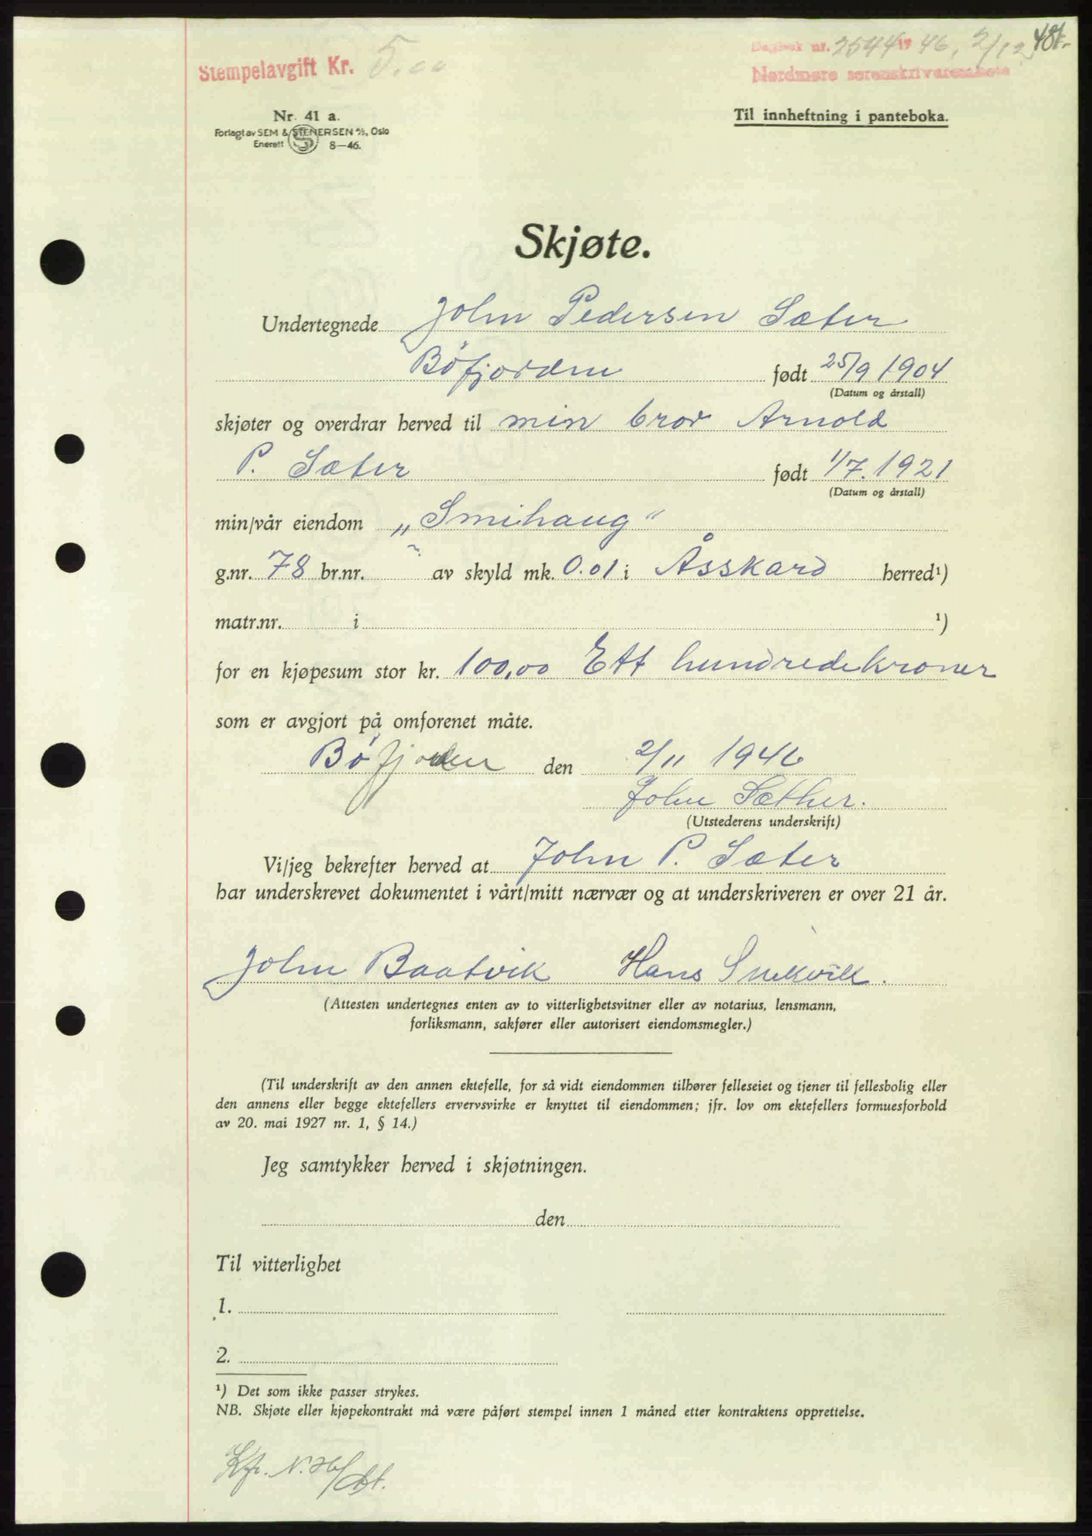 Stempelavgift Kr. 5.00
Dagbok nr. 2544 19 46, 2/12 481.
Nordmøre sorenskriverembete
Nr. 41 a.
Forlagt av SEM & STENERSEN A/S, Oslo
Enerett 8—46.
Til innheftning i panteboka.
Skjøte.
Undertegnede John Pedersen Sæter
Bøfjorden født 25/9 1904
(Datum og årstall)
skjøter og overdrar herved til min bror Arnold
P. Sæter født 1/7. 1921
(Datum og årstall)
min/vår eiendom „Smihaug"
g.nr. 78 br.nr. av skyld mk. 0.01 i Åsskard herred¹)
matr.nr. i ¹)
for en kjøpesum stor kr. 100,00 Ett hundredekroner
som er avgjort på omforenet måte.
Bøfjorden den 2/11 1946
John Sæther.
(Utstederens underskrift)
Vi/jeg bekrefter herved at John P. Sæter
har underskrevet dokumentet i vårt/mitt nærvær og at underskriveren er over 21 år.
John Baatvik Hans Snekvik.
(Attesten undertegnes enten av to vitterlighetsvitner eller av notarius, lensmann,
forliksmann, sakfører eller autorisert eiendomsmegler.)
(Til underskrift av den annen ektefelle, for så vidt eiendommen tilhører felleseiet og tjener til fellesbolig eller
den annens eller begge ektefellers ervervsvirke er knyttet til eiendommen; jfr. lov om ektefellers formuesforhold
av 20. mai 1927 nr. 1, § 14.)
Jeg samtykker herved i skjøtningen.
den
Til vitterlighet
1.
2.
¹) Det som ikke passer strykes.
NB. Skjøte eller kjøpekontrakt må være påført stempel innen 1 måned etter kontraktens opprettelse.